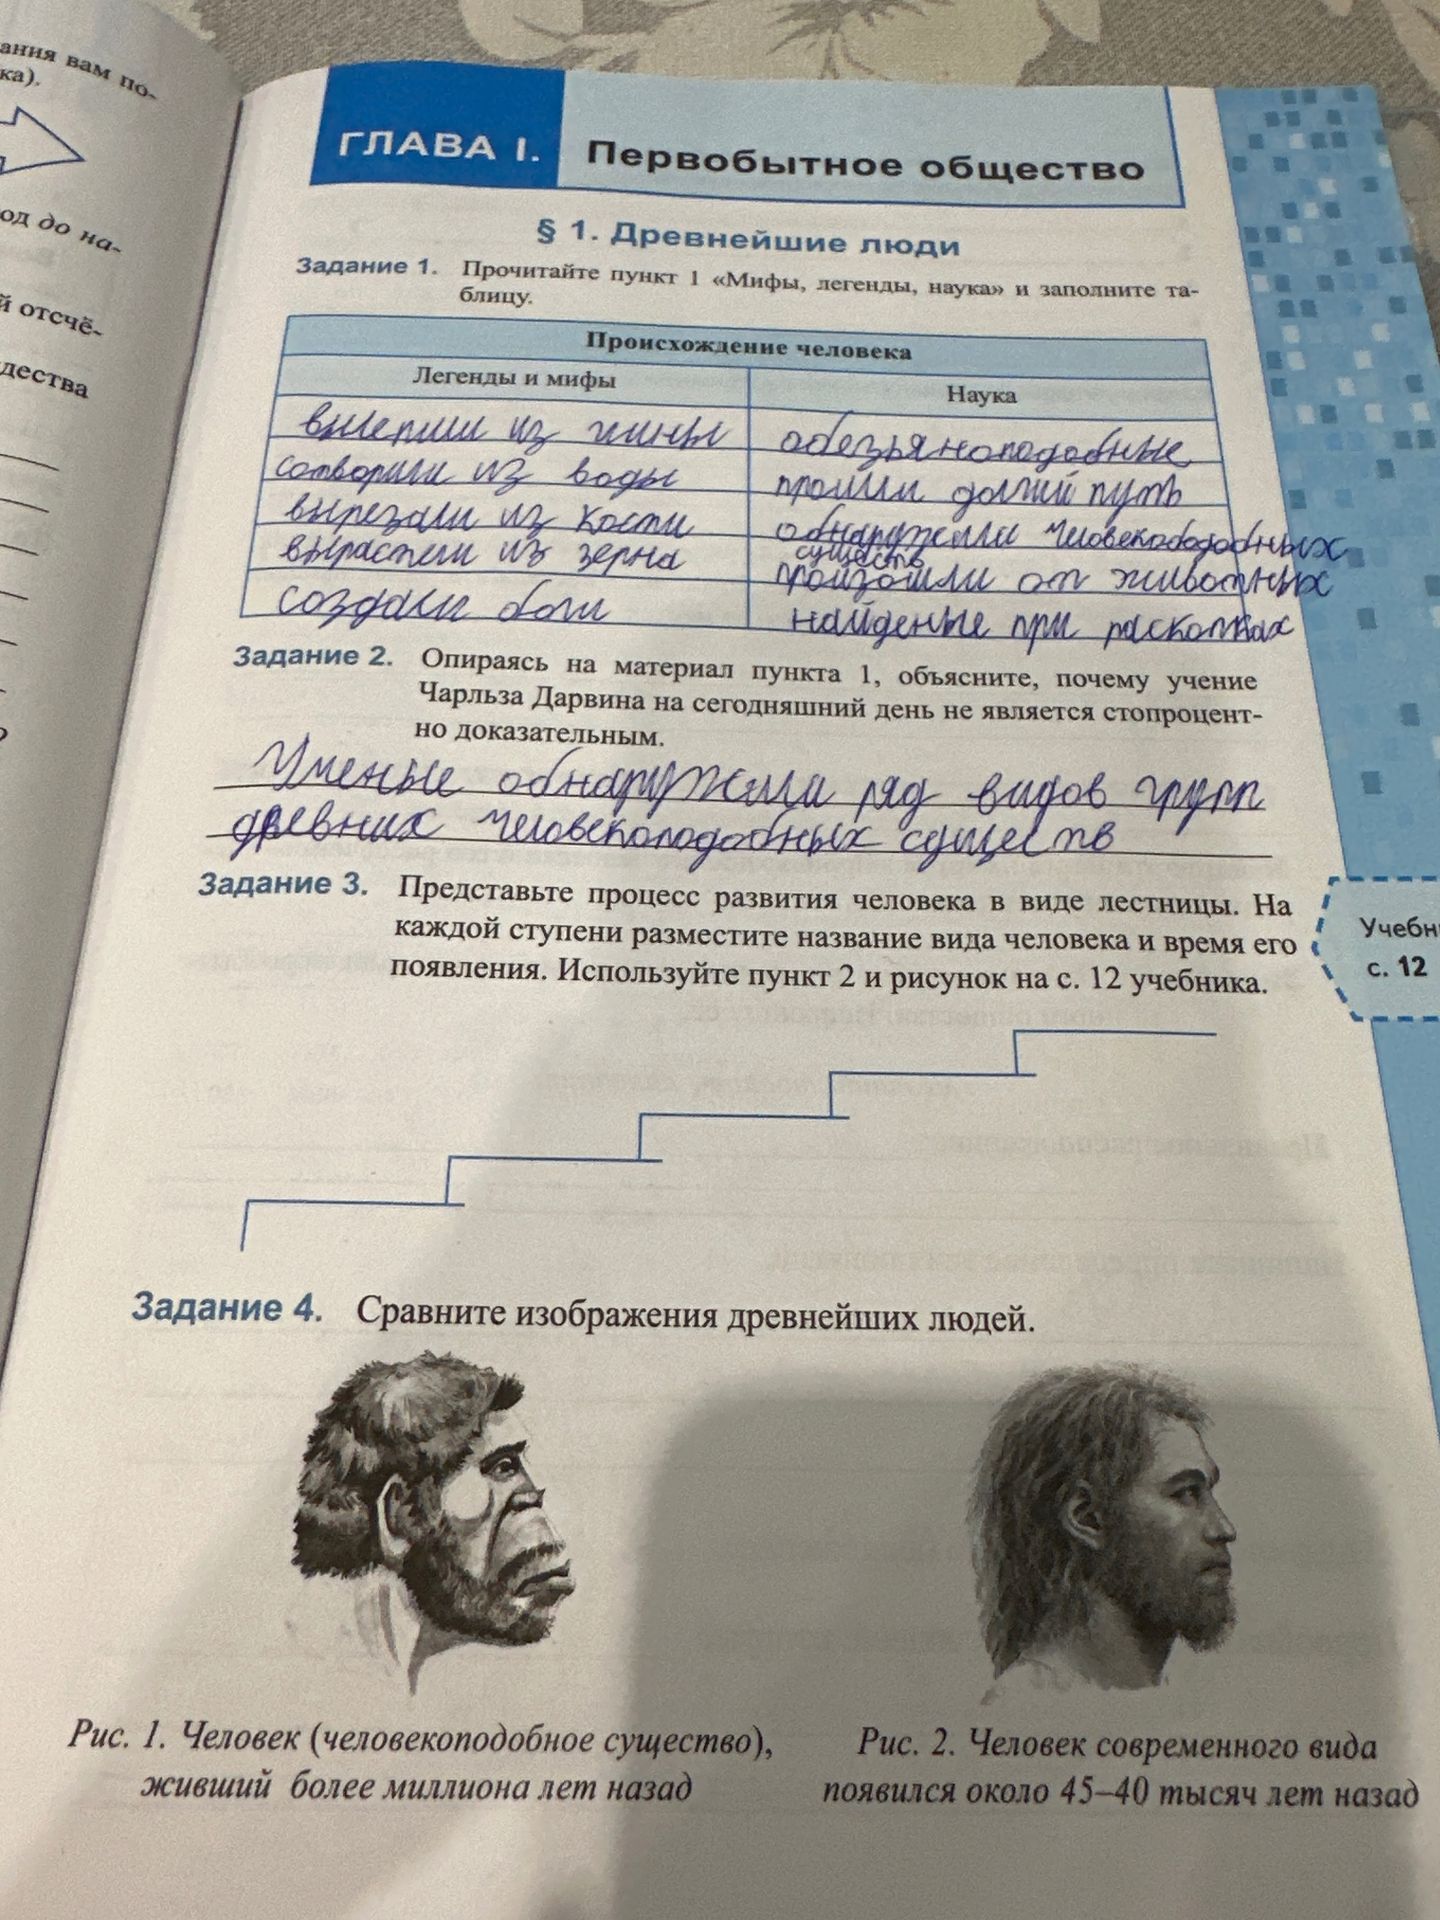 ания вам по-
ка).
од до на-
й отсчё-
дества
ГЛАВА I.
Первобытное общество
§ 1. Древнейшие люди
Задание 1. Прочитайте пункт 1 «Мифы, легенды, наука» и заполните та-
блицу.
Происхождение человека
Легенды и мифы
Наука
вылепили из глины
обезьяноподобные
сотворили из воды
прошли долгий путь
вырезали из кости
обнаружили человекоподобных
существ
вырастили из зерна
произошли от животных
создали боги
найденые при раскопках
Задание 2. Опираясь на материал пункта 1, объясните, почему учение
Чарльза Дарвина на сегодняшний день не является стопроцент-
но доказательным.
Ученые обнаружили ряд видов групп
древних человекоподобных существ
Задание 3. Представьте процесс развития человека в виде лестницы. На
каждой ступени разместите название вида человека и время его
появления. Используйте пункт 2 и рисунок на с. 12 учебника.
с. 12
Задание 4. Сравните изображения древнейших людей.
Рис. 1. Человек (человекоподобное существо),
живший более миллиона лет назад
Рис. 2. Человек современного вида
появился около 45–40 тысяч лет назад